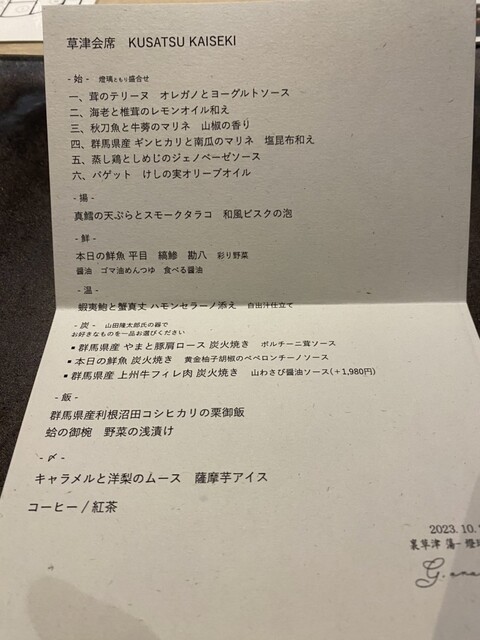 草津会席 KUSATSU KAISEKI
- 始 - 燈璃ともり盛合せ
一、茸のテリーヌ オレガノとヨーグルトソース
二、海老と椎茸のレモンオイル和え
三、秋刀魚と牛蒡のマリネ 山椒の香り
四、群馬県産 ギンヒカリと南瓜のマリネ 塩昆布和え
五、蒸し鶏としめじのジェノベーゼソース
六、バゲット けしの実オリーブオイル
- 揚 -
真鱈の天ぷらとスモークタラコ 和風ビスクの泡
- 鮮 -
本日の鮮魚 平目 縞鯵 勘八 彩り野菜
醤油 ゴマ油めんつゆ 食べる醤油
- 温 -
蝦夷鮑と蟹真丈 ハモンセラーノ添え 白出汁仕立て
- 炭 - 山田隆太郎氏の器で
お好きなものを一品お選びください
▪群馬県産 やまと豚肩ロース 炭火焼き ポルチーニ茸ソース
▪本日の鮮魚 炭火焼き 黄金柚子胡椒のペペロンチーノソース
▪群馬県産 上州牛フィレ肉 炭火焼き 山わさび醤油ソース(+1,980円)
- 飯 -
群馬県産利根沼田コシヒカリの栗御飯
蛤の御椀 野菜の浅漬け
- 〆 -
キャラメルと洋梨のムース 薩摩芋アイス
コーヒー / 紅茶
2023.10.
裏草津 蕩 - 燈